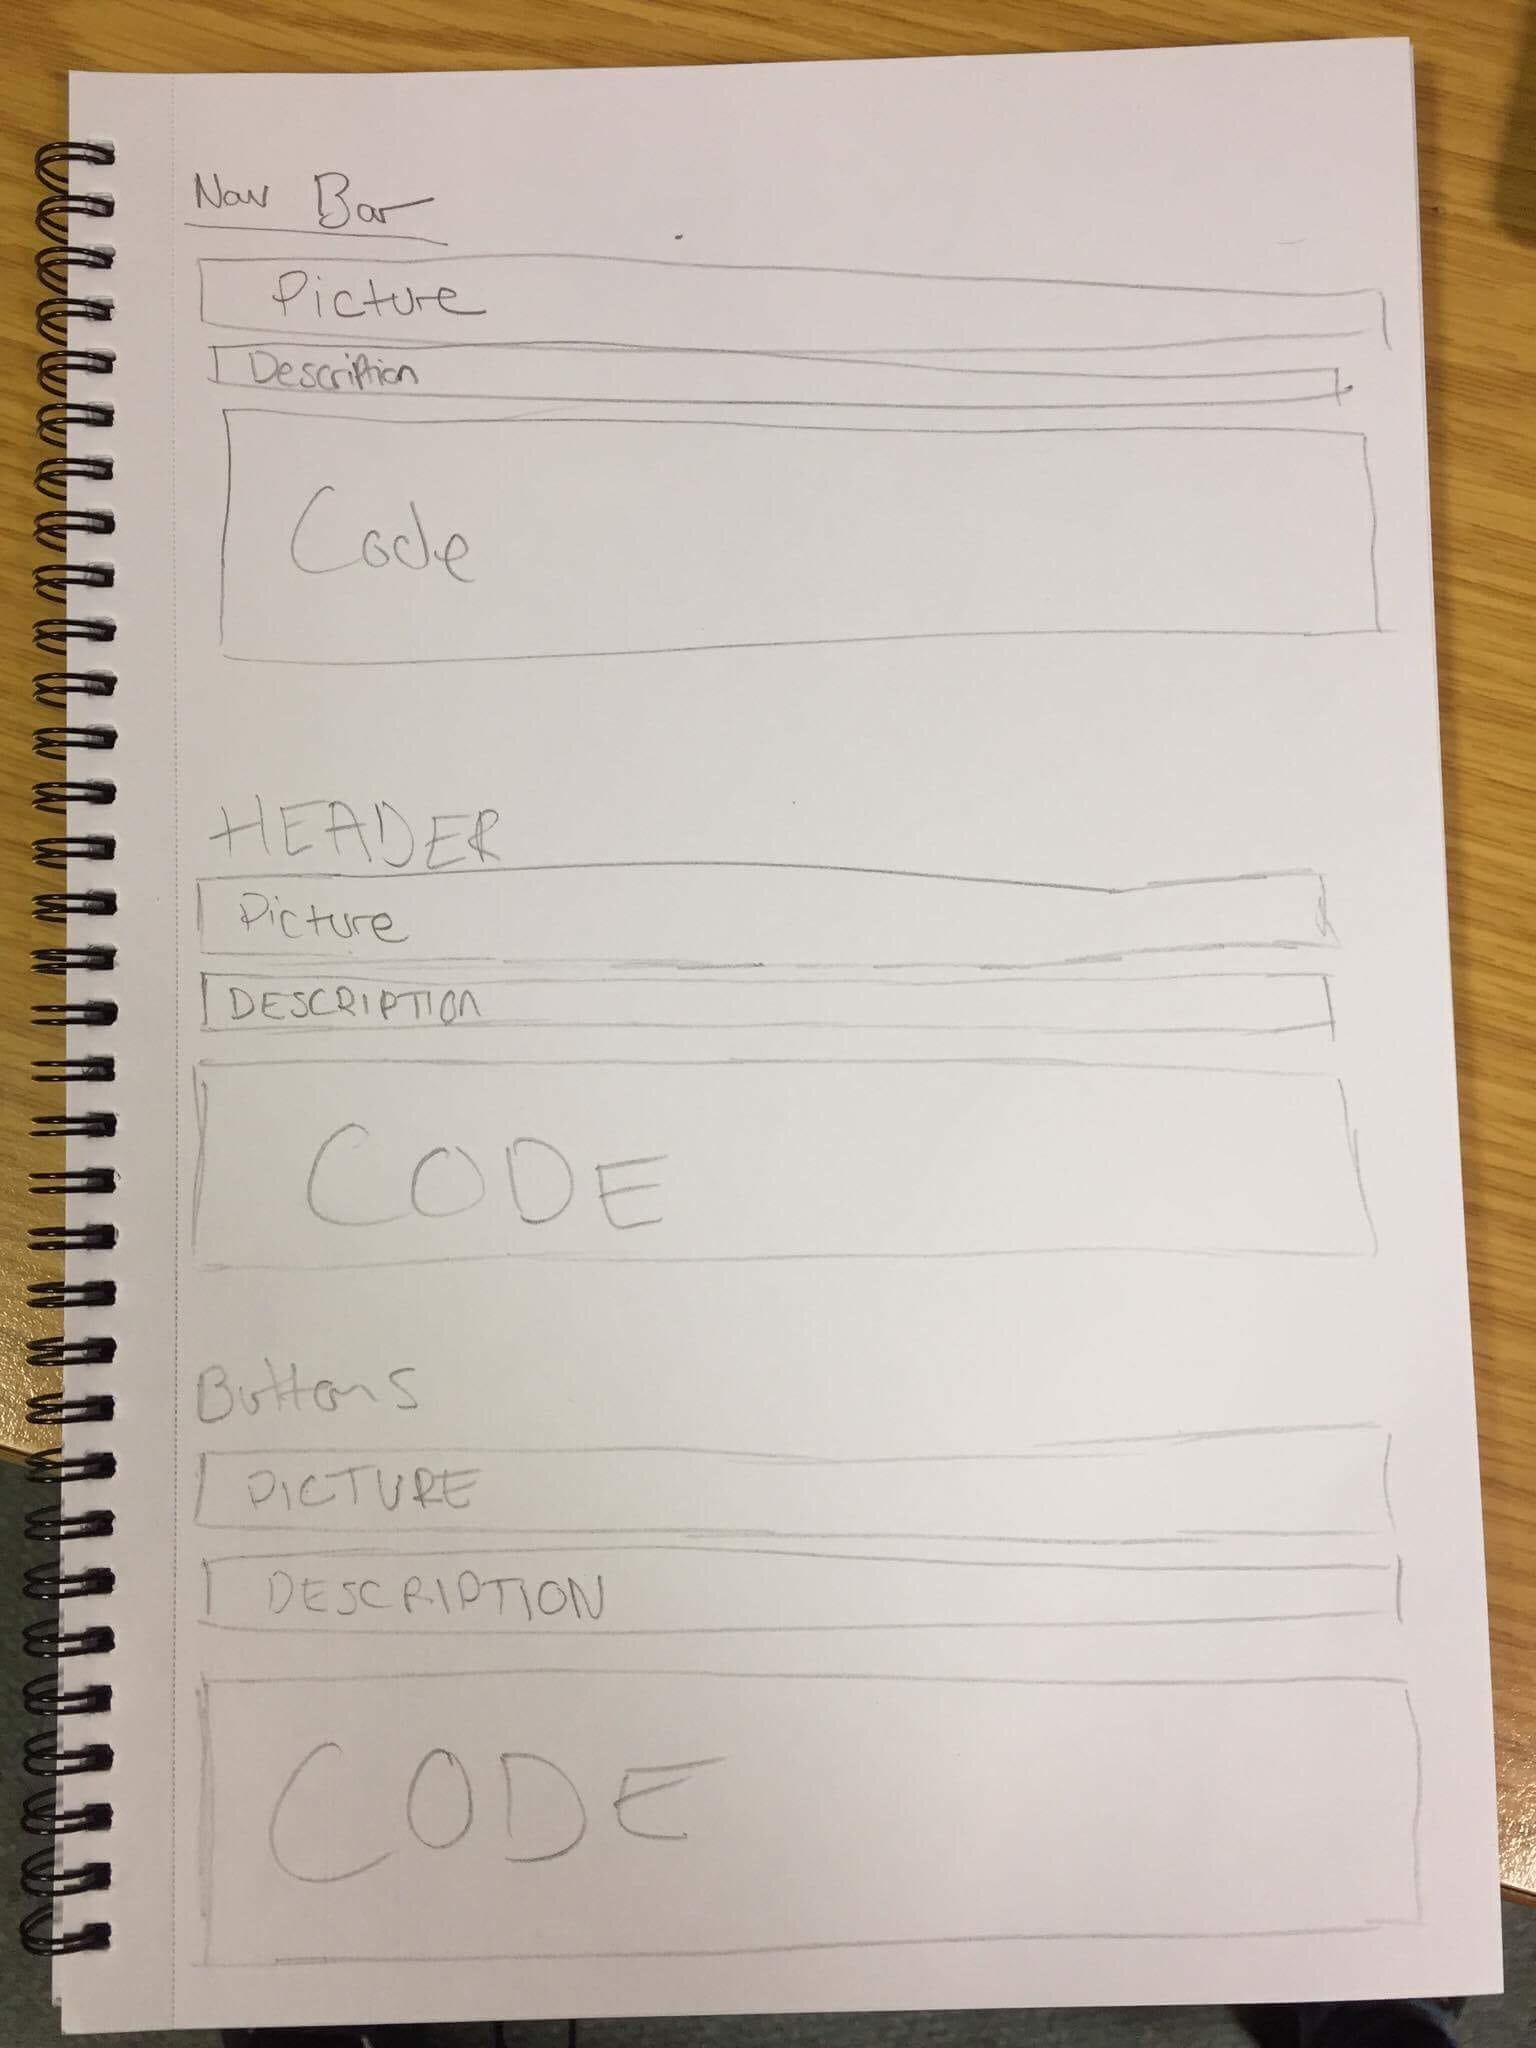 Nav Bar
Picture
Description
Code
HEADER
Picture
DESCRIPTION
CODE
Buttons
PICTURE
DESCRIPTION
CODE